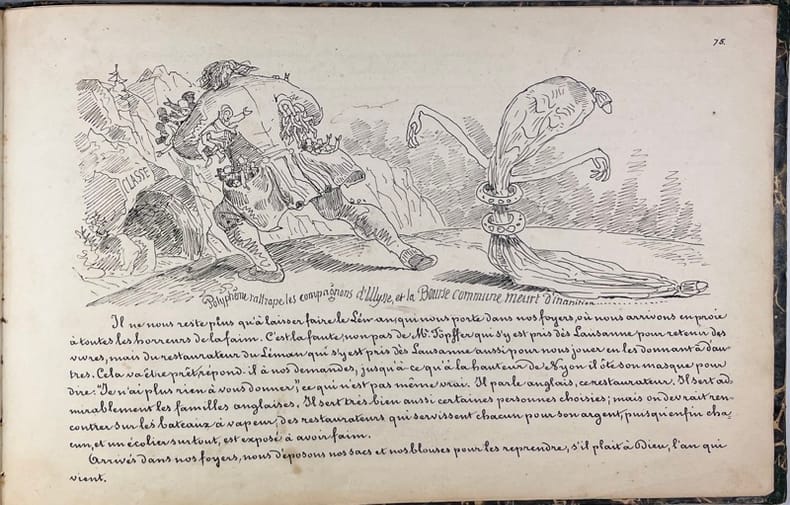 75.
CLASSE
Polyphème rattrape les compagnons d'Ulysse, et la Bourse commune meurt d'inanition
Il ne nous reste plus qu'à laisser faire le Léman, qui nous porte dans nos foyers, où nous arrivons en proie
à toutes les horreurs de la faim. C'est la faute, non pas de Mr. Töpffer qui s'y est pris dès Lausanne pour retenir des
vivres, mais du restaurateur du Léman qui s'y est pris dès Lausanne aussi pour nous jouer en les donnant à d'au-
tres. Cela va être prêt, répond-il à nos demandes, jusqu'à ce qu'à la hauteur de Nyon il ôte son masque pour
dire: "Je n'ai plus rien à vous donner", ce qui n'est pas même vrai. Il parle anglais, ce restaurateur. Il sert ad-
mirablement les familles anglaises. Il sert très bien aussi certaines personnes choisies; mais on devrait ren-
contrer sur les bateaux à vapeur, des restaurateurs qui servissent chacun pour son argent, puisqu'enfin cha-
cun, et un écolier surtout, est exposé à avoir faim.
Arrivés dans nos foyers, nous déposons nos sacs et nos blouses pour les reprendre, s'il plait à Dieu, l'an qui
vient.